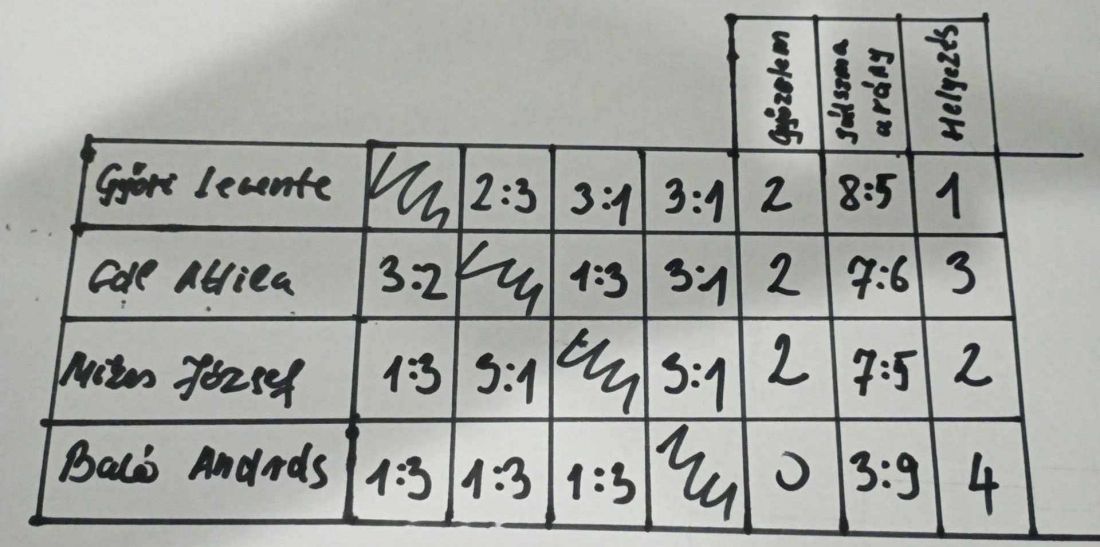 Győzelem Játszma arány Helyezés
Győri Levente 2:3 3:1 3:1 2 8:5 1
Gál Attila 3:2 1:3 3:1 2 7:6 3
József 1:3 3:1 3:1 2 7:5 2
Baló András 1:3 1:3 1:3 0 3:9 4